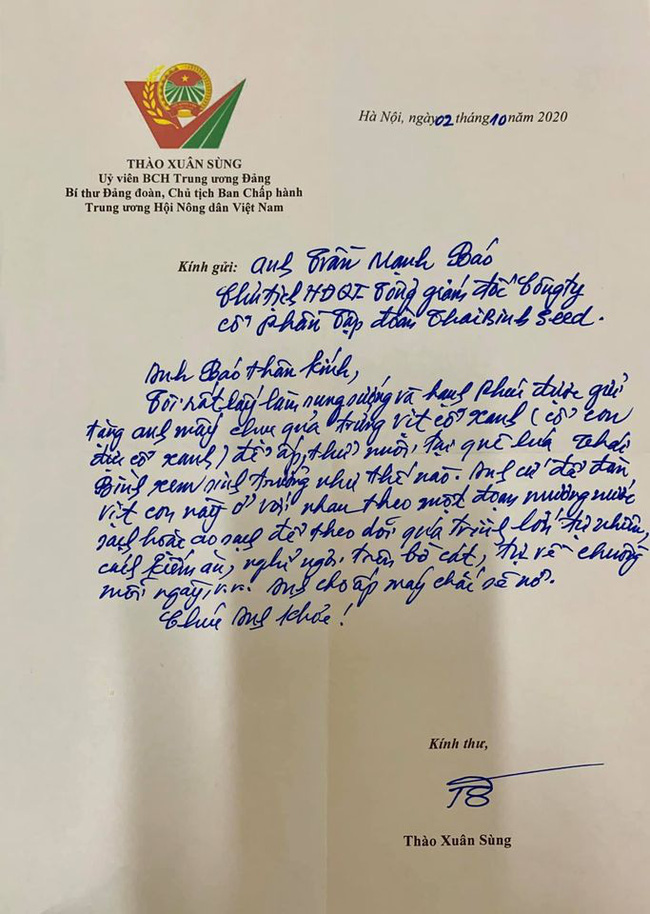 Hà Nội, ngày 02 tháng 10 năm 2020
THÀO XUÂN SÙNG
Uỷ viên BCH Trung ương Đảng
Bí thư Đảng đoàn, Chủ tịch Ban Chấp hành
Trung ương Hội Nông dân Việt Nam
Kính gửi: Anh Trần Mạnh Báo
Chủ tịch HĐQT Tổng giám đốc Công ty
cổ phần Tập đoàn ThaiBinh Seed.
Anh Báo thân kính,
Tôi rất lấy làm sung sướng và hạnh phúc được gửi
tặng anh mấy chục quả trứng vịt cổ xanh (có con
đực cổ xanh) để ấp, thử nuôi, tại quê lúa Thái
Bình xem sinh trưởng như thế nào. Anh cứ để đàn
vịt con này ở với nhau theo một đoạn mương nước
sạch hoặc ao sạch để theo dõi quá trình lớn tự nhiên,
cách kiếm ăn, nghỉ ngơi trên bờ cát, tự về chuồng
mỗi ngày, v.v. Anh cho ấp máy chắc sẽ nở.
Chúc Anh khỏe!
Kính thư,
Thào Xuân Sùng